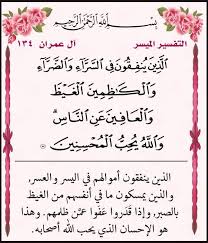 بِسْمِ اللَّهِ الرَّحْمَٰنِ الرَّحِيمِ
التفسير الميسر
آل عمران ١٣٤
الَّذِينَ يُنفِقُونَ فِي السَّرَّاءِ وَالضَّرَّاءِ
وَالْكَاظِمِينَ الْغَيْظَ
وَالْعَافِينَ عَنِ النَّاسِ ۗ
وَاللَّهُ يُحِبُّ الْمُحْسِنِينَ
الذين ينفقون أموالهم في اليسر والعسر,
والذين يمسكون ما في أنفسهم من الغيظ
بالصبر, وإذا قَدَروا عَفَوا عمَّن ظلمهم. وهذا
هو الإحسان الذي يحب الله أصحابه.